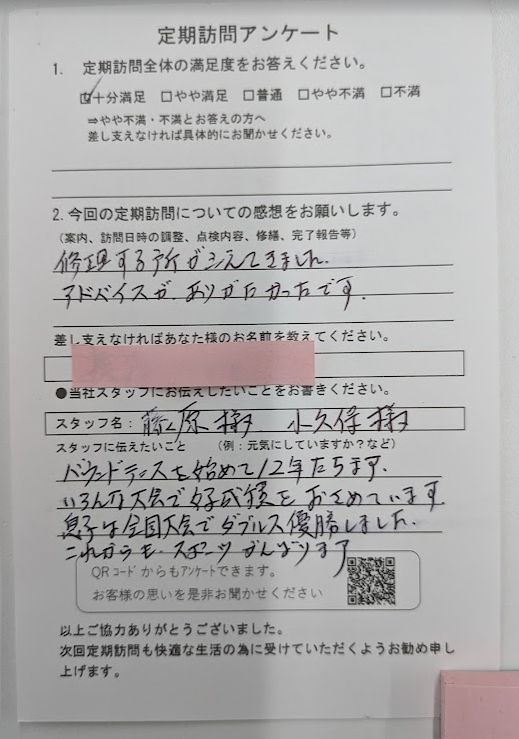 定期訪問アンケート
1. 定期訪問全体の満足度をお答えください。
☑十分満足 □やや満足 □普通 □やや不満 □不満
⇒やや不満・不満とお答えの方へ
差し支えなければ具体的にお聞かせください。
2.今回の定期訪問についての感想をお願いします。
(案内、訪問日時の調整、点検内容、修繕、完了報告等)
修理する所がふえてきました。
アドバイスが、ありがたかったです。
差し支えなければあなた様のお名前を教えてください。
●当社スタッフにお伝えしたいことをお書きください。
スタッフ名: 藤原様 小久保様
スタッフに伝えたいこと (例:元気にしていますか?など)
バウンドテニスを始めて12年たちます。
いろんな大会で好成績をおさめています。
息子は全国大会でダブルス優勝しました。
これからもスポーツがんばります
QRコードからもアンケートできます。
お客様の思いを是非お聞かせください
以上ご協力ありがとうございました。
次回定期訪問も快適な生活の為に受けていただくようお勧め申し
上げます。